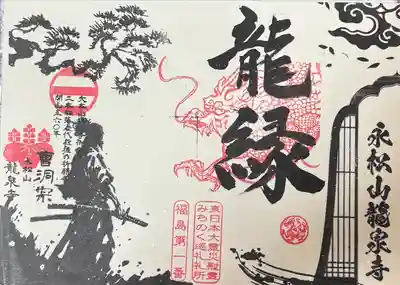 龍縁
永松山龍泉寺
東日本大震災慰霊
みちのく巡礼札所
福島第一番
曹洞宗
永松山
龍泉寺